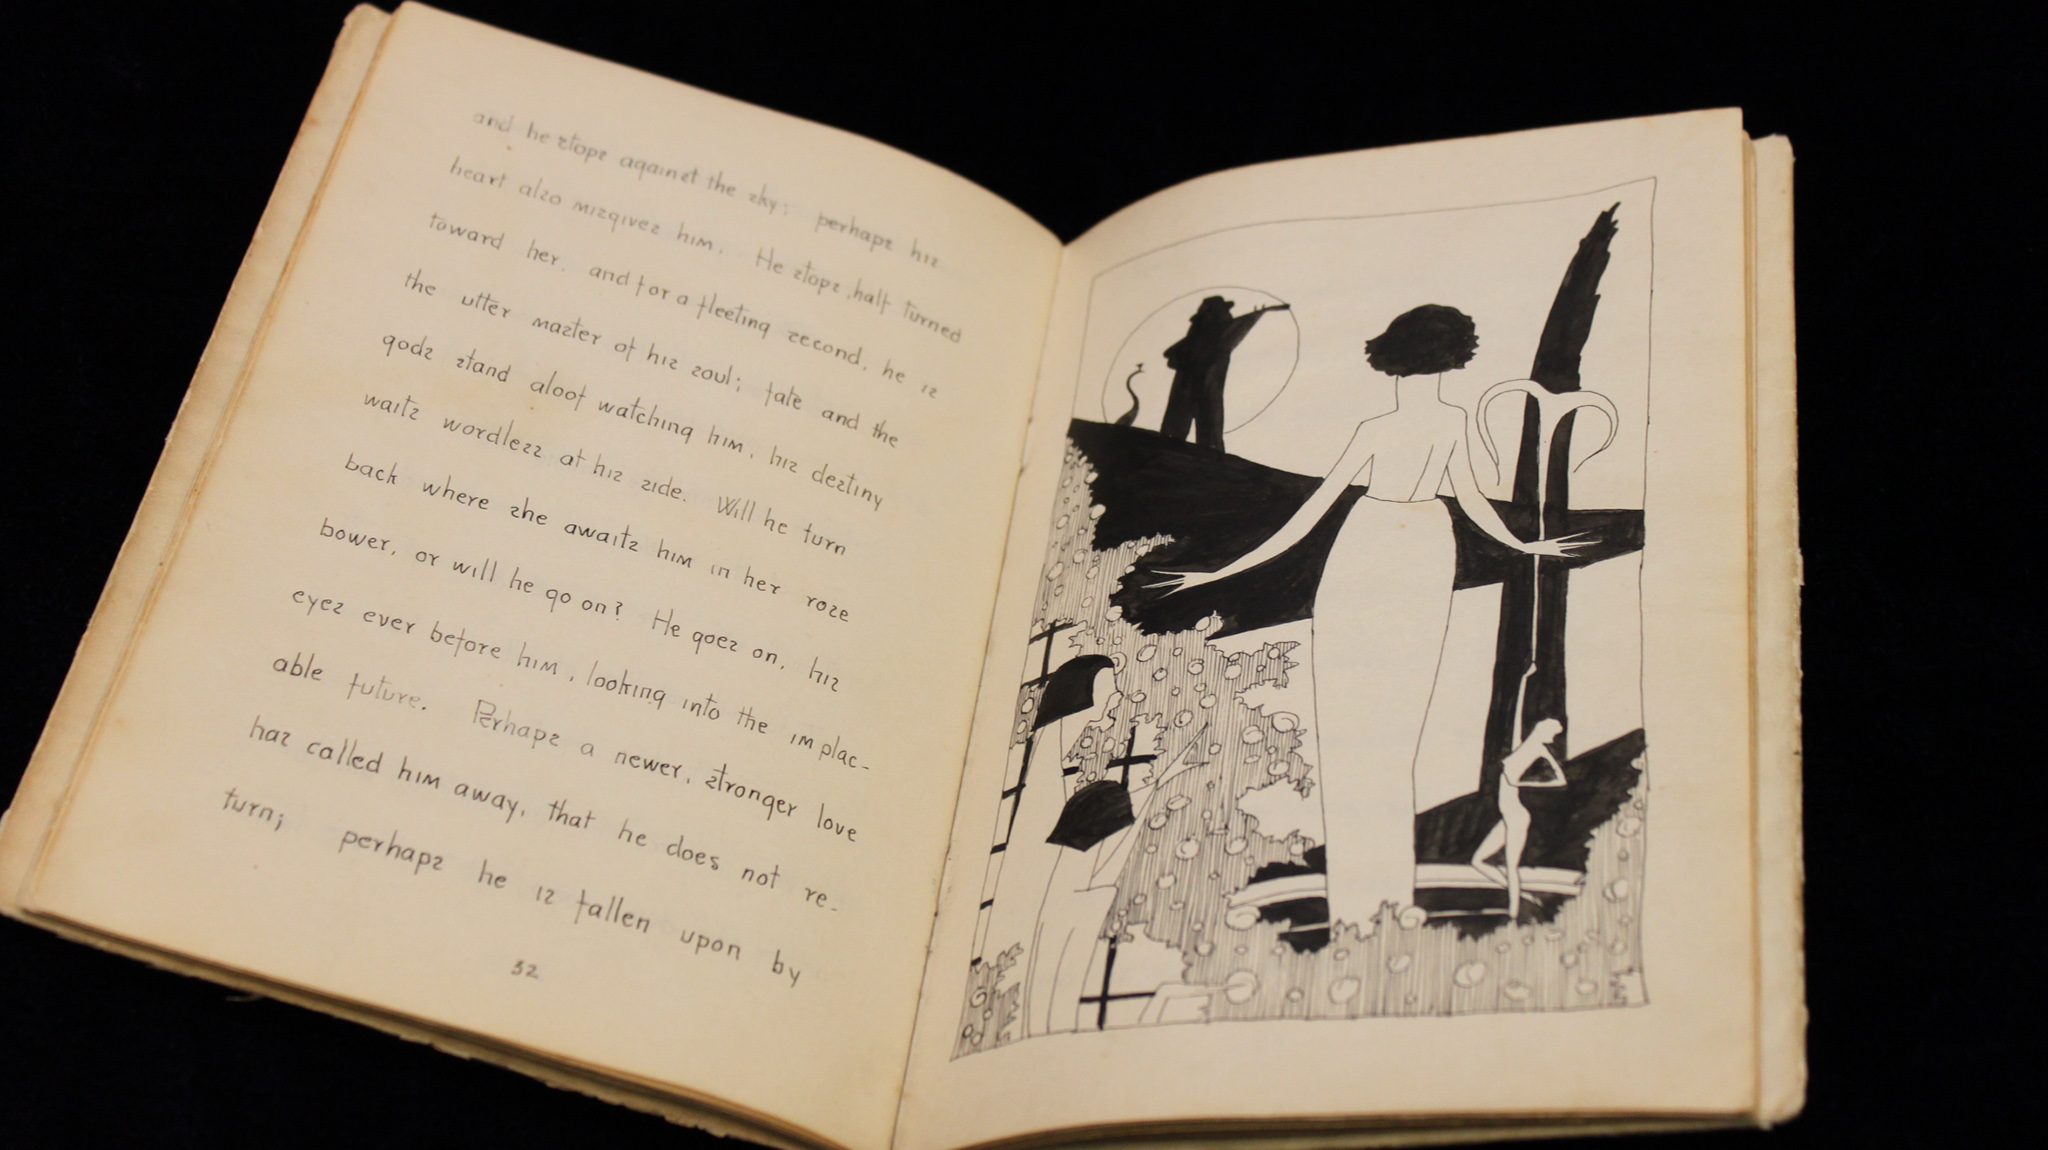 and he stops against the sky; perhaps his
heart also misgives him. He stops, half turned
toward her. and for a fleeting second, he is
the utter master of his soul; fate and the
gods stand aloof watching him, his destiny
waits wordless at his side. Will he turn
back where she awaits him in her rose
bower, or will he go on? He goes on, his
eyes ever before him, looking into the implac-
able future. Perhaps a newer, stronger love
has called him away, that he does not re-
turn; perhaps he is fallen upon by
32